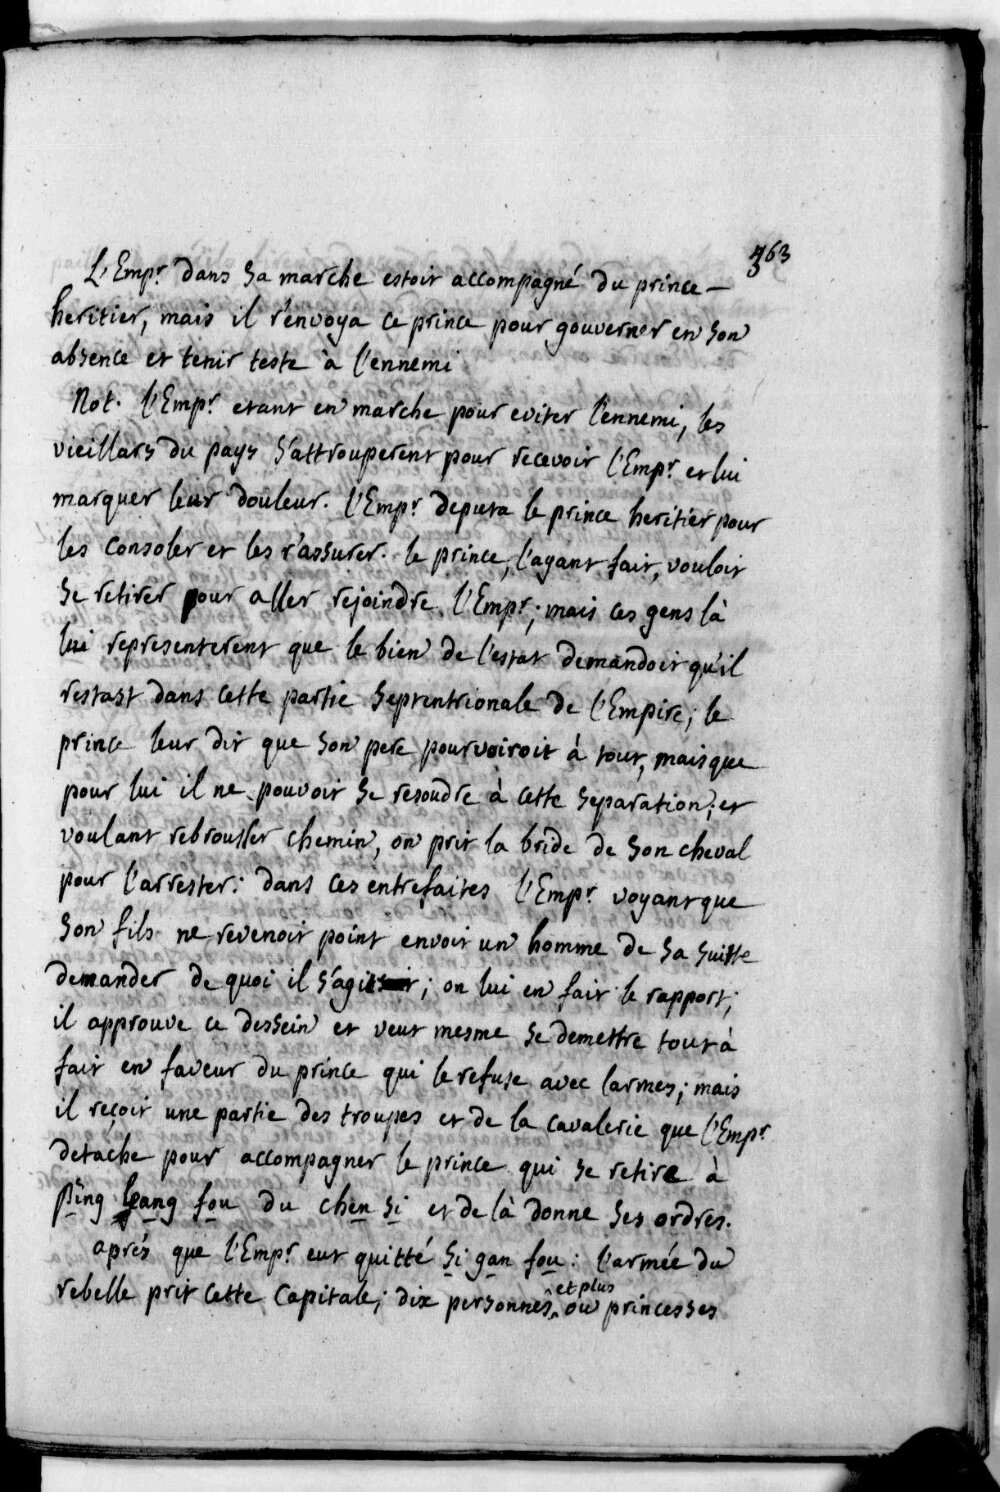 363
L'Empr dans sa marche estoit accompagné du prince
heritier, mais il r'envoya ce prince pour gouverner en son
absence et tenir teste à l'ennemi
Not. l'Empr etant en marche pour eviter l'ennemi, les
vieillars du pays s'attrouperent pour recevoir l'Empr et lui
marquer leur douleur. l'Empr deputa le prince heritier pour
les consoler et les r'assurer. le prince, l'ayant fait, vouloit
se retirer pour aller rejoindre l'Empr; mais ces gens là
lui representerent que le bien de l'estat demandoit qu'il
restast dans cette partie septentrionale de l'Empire; le
prince leur dit que son pere pourvoiroit à tout, mais que
pour lui il ne pouvoit se resoudre à cette separation; et
voulant rebrousser chemin, on prit la bride de son cheval
pour l'arrester: dans ces entrefaites l'Empr voyant que
son fils ne revenoit point envoit un homme de sa suitte
demander de quoi il s'agit; on lui en fait le rapport;
il approuve ce dessein et veut mesme se demettre tout à
fait en faveur du prince qui le refuse avec larmes; mais
il reçoit une partie des troupes et de la cavalerie que l'Empr
detache pour accompagner le prince qui se retire à
ping leang fou du chen si et de là donne ses ordres.
aprés que l'Empr eut quitté si gan fou: l'armée du
rebelle prit cette capitale; dix personnes et plus ou princesses